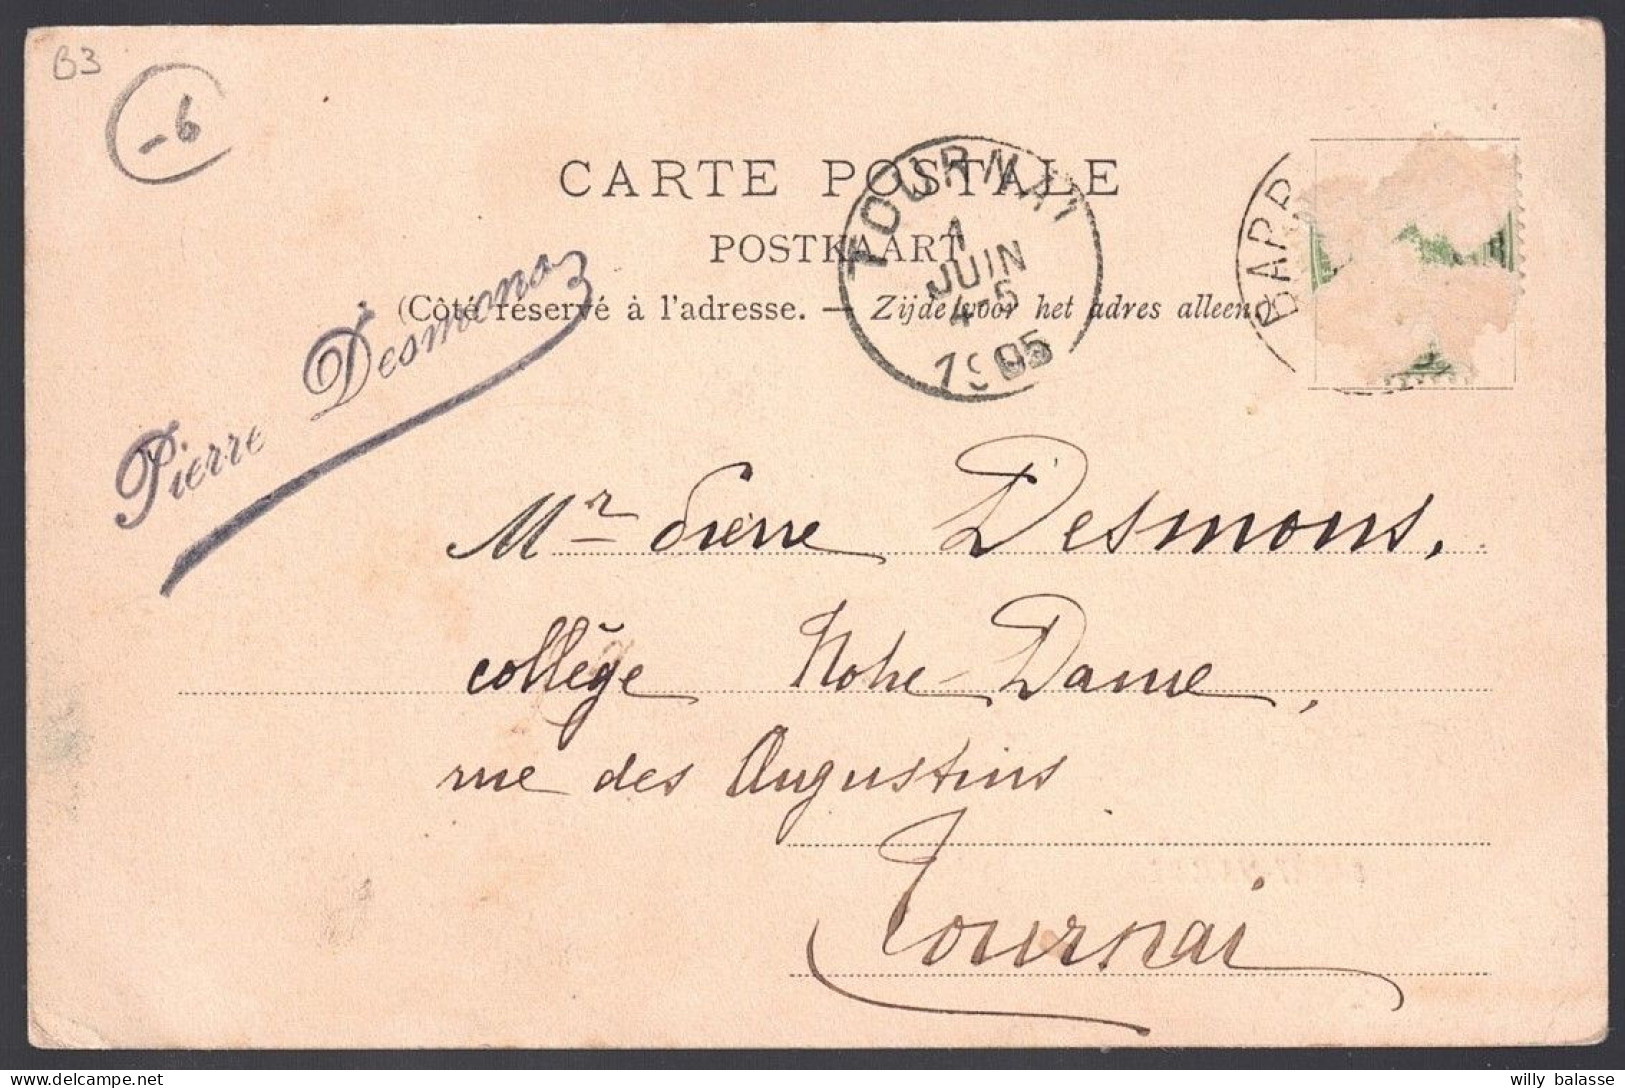 B3
-6
CARTE POSTALE
POSTKAART
(Côté réservé à l'adresse. — Zijde voor het adres alleen)
TOURNAI
1
JUIN
4-5
1905
BARR
Pierre Desmons
Mr Pierre Desmons,
collège Notre-Dame,
rue des Augustins
Tournai
willy balasse